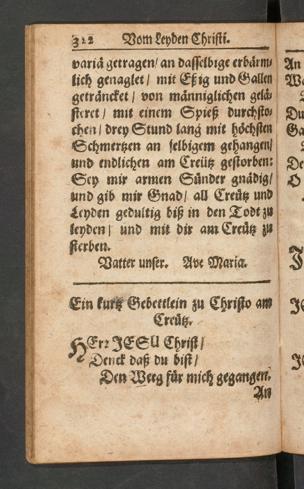 312 Vom Leyden Christi.
variä getragen/ an dasselbige erbärm-
lich genaglet/ mit Eßig und Gallen
geträncket/ von männiglichen gelä-
steret/ mit einem Spieß durchsto-
chen/ drey Stund lang mit höchsten
Schmertzen an selbigem gehangen/
und endlichen am Creütz gestorben:
Sey mir armen Sünder gnädig/
und gib mir Gnad/ all Creütz und
Leyden gedultig biß in den Todt zu
leyden/ und mit dir am Creütz zu
sterben.
Vatter unser. Ave Maria.
Ein kurtz Gebettlein zu Christo am
Creütz.
HErr JESU Christ/
Denck daß du bist/
Den Weeg für mich gegangen.
An